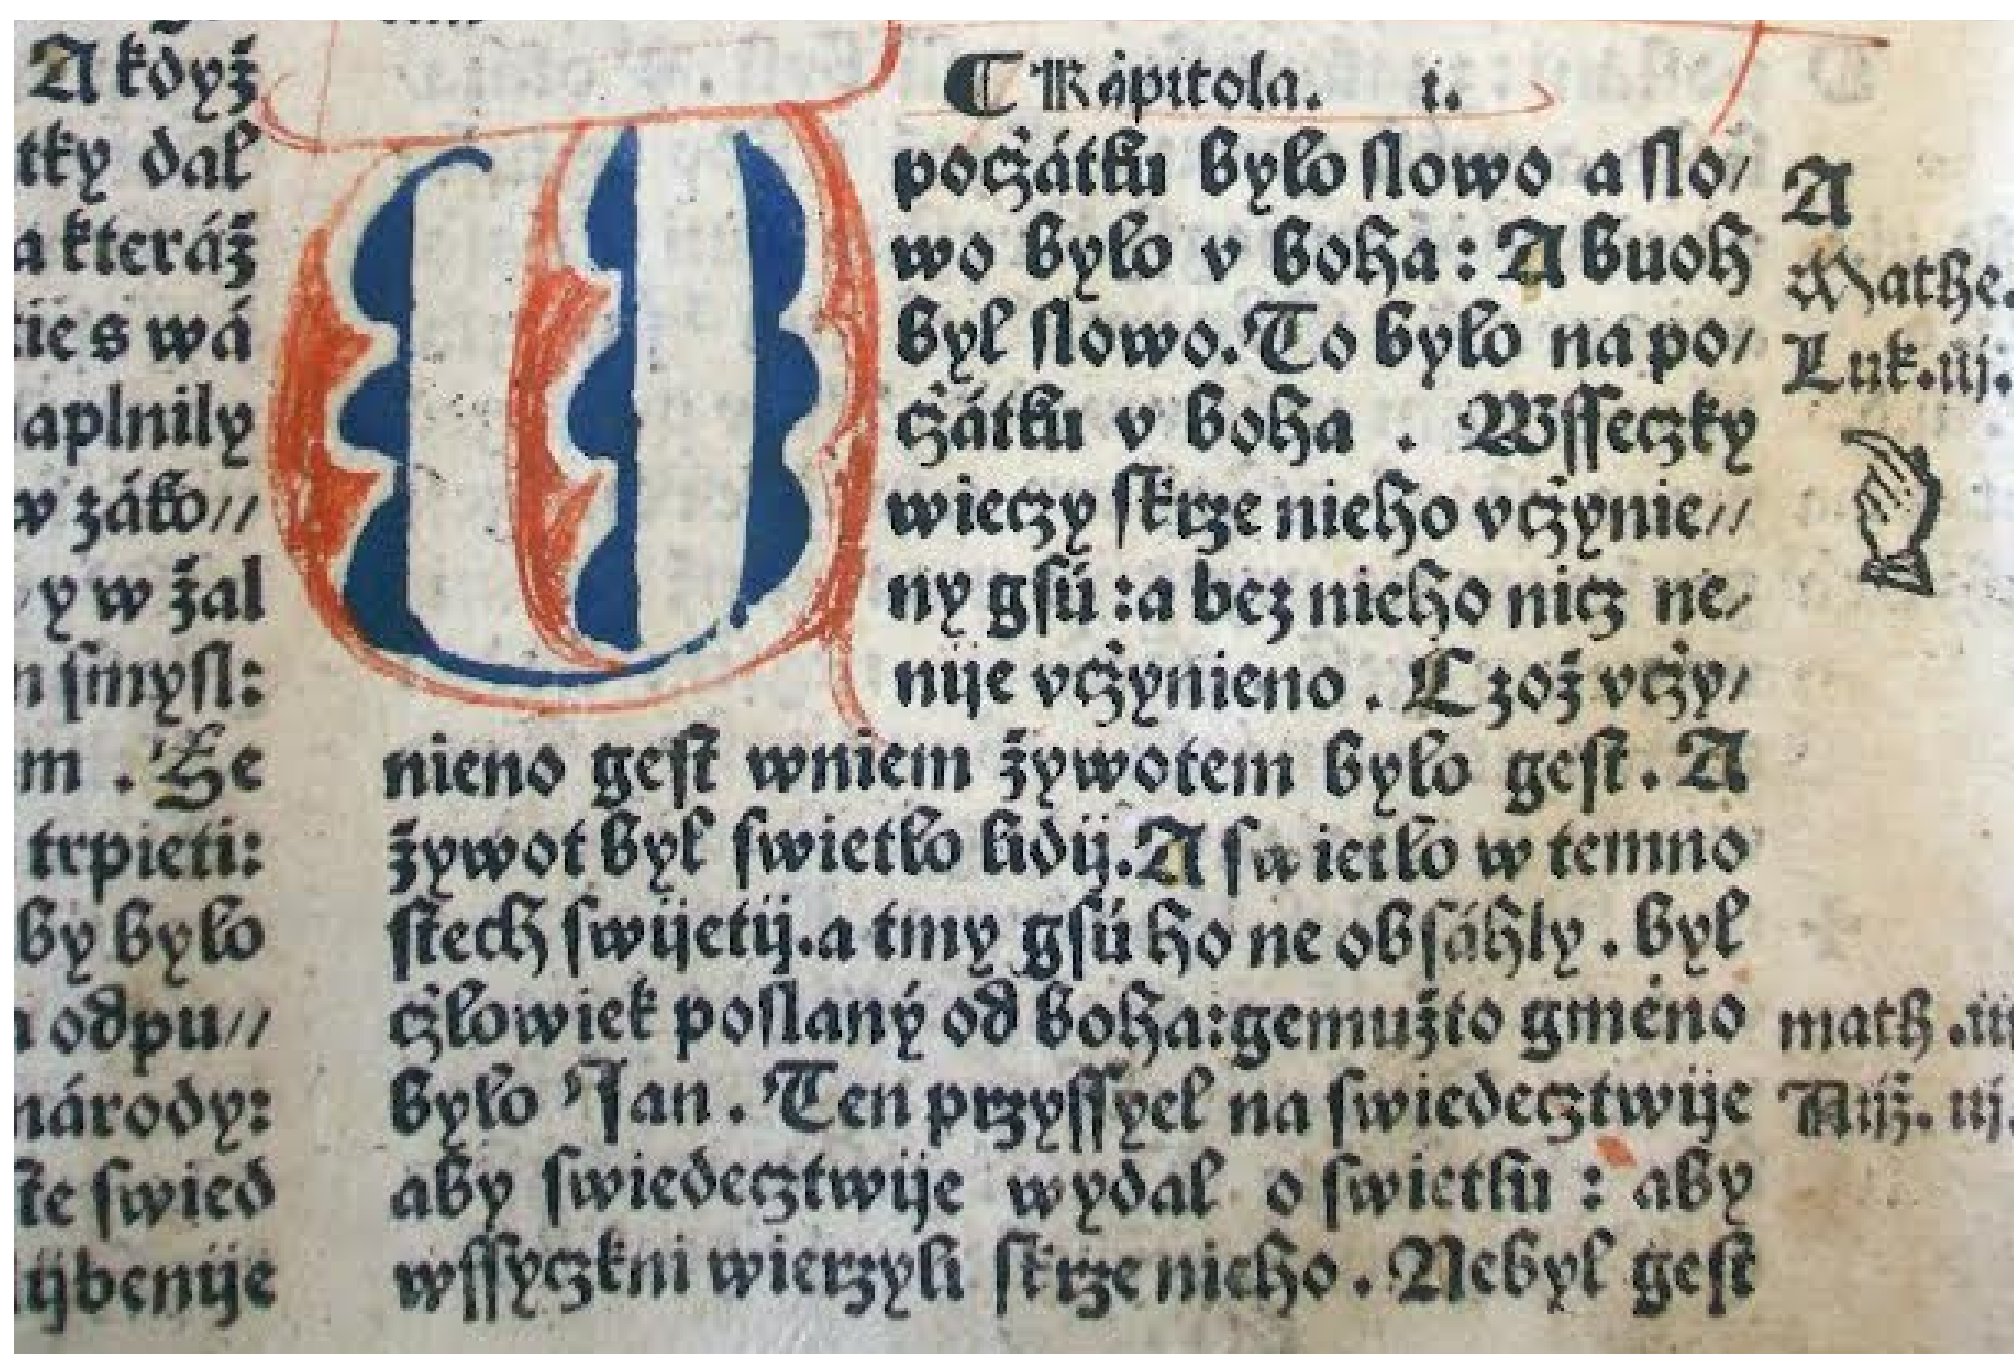 A když
tky dal
a kteráž
tie s wá
aplnily
w záko//
y w žal
n ſmyſl:
m . Že
trpieti:
by bylo
odpu//
národy:
ſte ſwied
ijbenije
Kápitola. i.
W
poczátku bylo ſlowo a ſlo/
wo bylo v boha : A buoh
byl ſlowo. To bylo na po/
czátku v boha . Wſſeczky
wieczy ſkrze nieho vczynie//
ny gſú : a bez nieho nicz ne/
nije vczynieno . Czož vczy/
nieno geſt wniem žywotem bylo geſt. A
žywot byl ſwietlo lidij. A ſwietlo w temno
ſtech ſwijetij. a tmy gſú ho ne obſáhly . byl
człowiek poſlaný od boha: gemužto gméno
bylo Jan . Ten przyſſyel na ſwiedecztwije
aby ſwiedecztwije wydal o ſwietlu : aby
wſſyczkni wierzyli ſkrze nieho . Nebyl geſt
A
Mathe.
Luk. iij.
math . iij